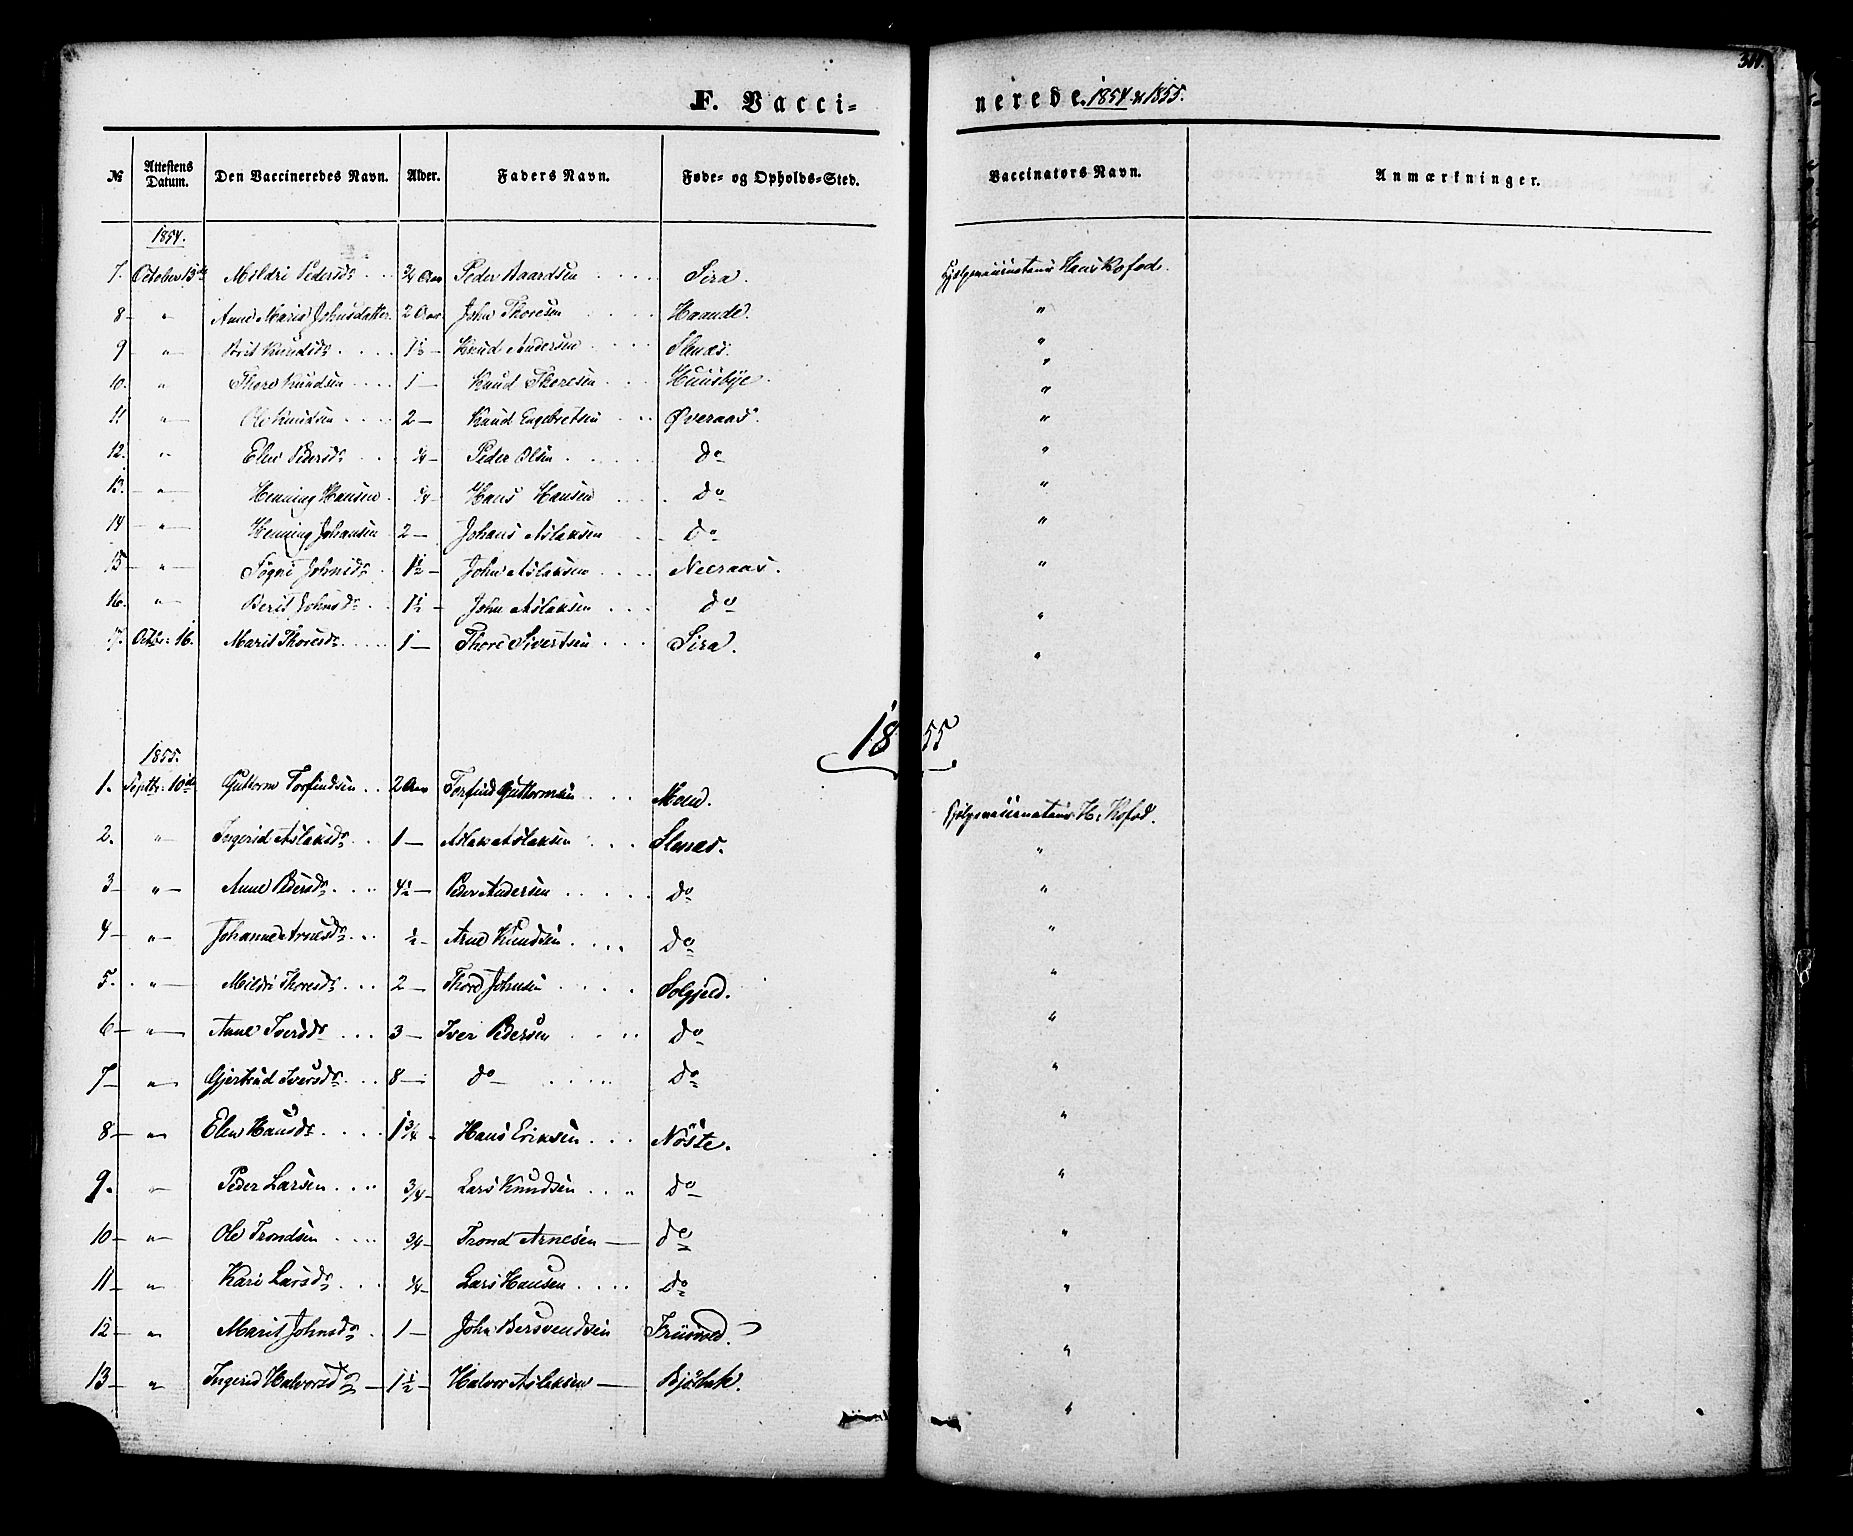 F. Vacci=
nerede. 1854 & 1855.
№ Attestens Datum. Den Vaccineredes Navn. Alder. Faders Navn. Føde- og Opholds-Sted. Vaccinators Navn. Anmærkninger.
1854.
7. October 13de Mildri Pedersdr ¾ Aar Peder Baardsen Sira. Hjelpevaccinateur Hans Kofod.
8 " Anne Marie Johnsdatter 2 Aar John Thoresen Haande. "
9 " Brit Knudsdr 1½ Knud Andersen Slenæs. "
10. " Thore Knudsen 1 Knud Thoresen Huusbye. "
11 " Ole Knudsen 2 Knud Engebretsen Øveraas. "
12. " Elen Pedersdr ¼ Peder Olsen do "
13. " Henning Hansen ¼ Hans Hansen do "
14 " Henning Johansen 2 Johans Aslaksen do "
15 " Søgni Johnsdr 1½ John Aslaksen Neeraas. "
16. " Berit Johnsdr 1½ John Aslaksen do "
17. Octbr: 16. Marit Thoresdr 1 Thore Sivertsen Sira. "
1855
1855.
1. Septbr: 10de Guttorm Torfindsen 2 Aar Torfind Guttormsen Moen. Hjelpevaccinateur H. Kofod.
2. " Ingerid Aslaksdr 1 Aslak Aslaksen Slenæs. "
3 " Anne Pedersdr 4½ Peder Andersen do "
4 " Johanne Arnesdr ½ Arne Knudsen do "
5. " Mildri Thoresdr 2 Thore Johnsen Solgjeld. "
6 " Anne Iversdr 3 Iver Pedersen do "
7 " Gjertrud Iversdr 8 do do "
8 " Elen Hansdr 1¾ Hans Eriksen Nöste. "
9. " Peder Larsen ¾ Lars Knudsen do "
10 " Ole Trondsen ¾ Trond Arnesen do "
11 " Kari Larsdr ¼ Lars Hansen do "
12 " Marit Johnsdr 1 John Bersvendsen "
13 " Ingerid Halvorsdr 1½ Halvor Aslaksen Bjørbæk. "